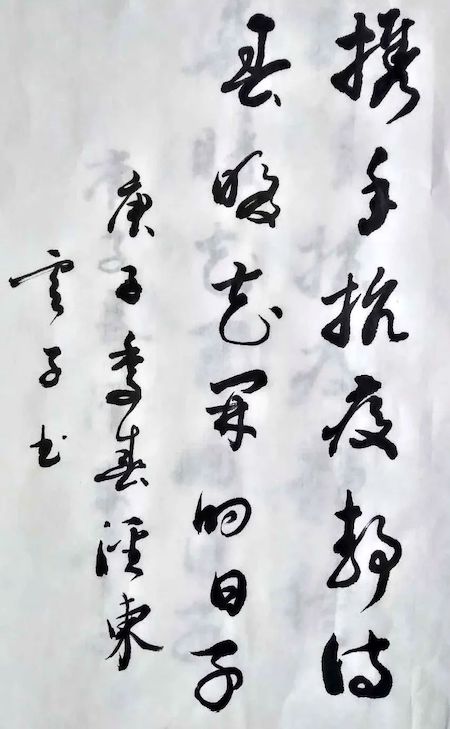 携手抗疫静待
春暖花开的日子
庚子季春泾东
云子书